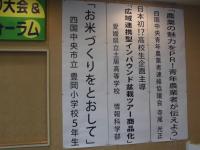 の大会&
ォーラム
「農業の魅力をPR!青年農業者が伝えよう」
四国中央青年農業者連絡協議会
日本初!?高校生企画主導
「広域連携型インバウンド盆栽ツアー商品化」
愛媛県立土居高等学校 情報科学部
「お米づくりをとおして」
四国中央市立 豊岡小学校5年生